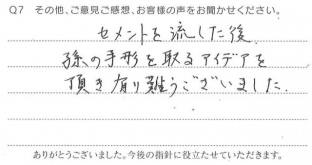 Q7 その他、ご意見ご感想、お客様の声をお聞かせください。
セメントを流した後、
孫の手形を取るアイデアを
頂き有り難うございました。
ありがとうございました。今後の指針に役立たせていただきます。